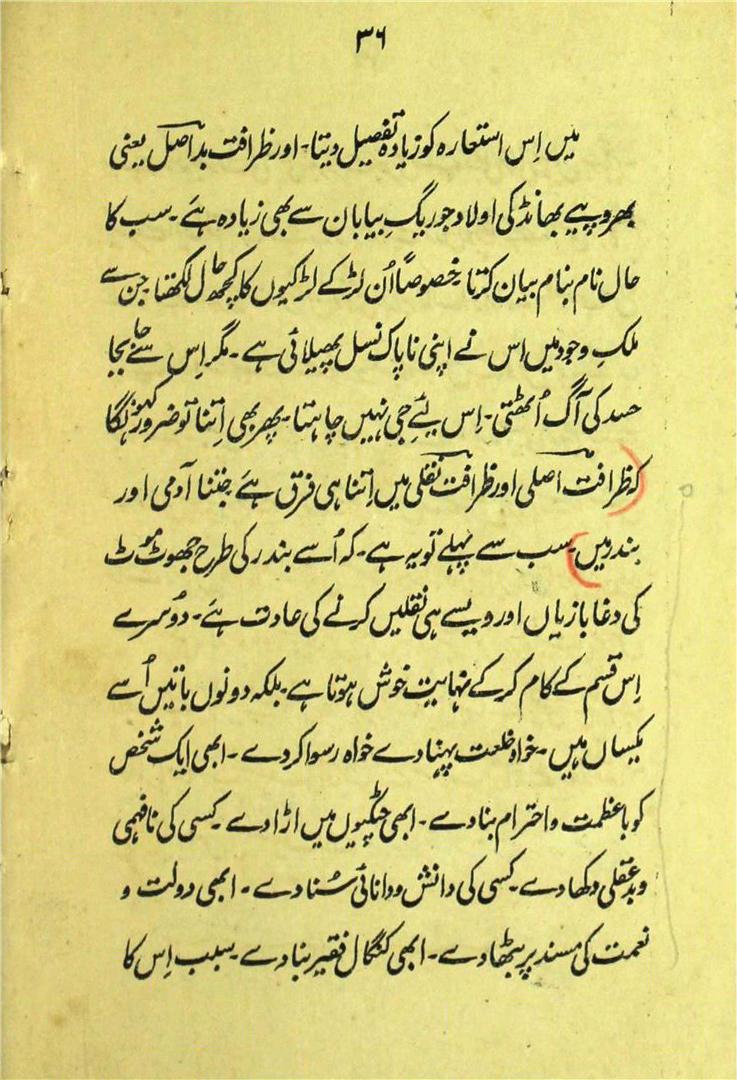 ۳۶
میں اِس استعارہ کو زیادہ تفصیل دیتا۔ اور ظرافت بد اصل یعنی
بھروپیے بھانڈ کی اولاد جو ریگِ بیابان سے بھی زیادہ ہے۔ سب کا
حال نام بنام بیان کرتا خصوصاً اُن لڑکے لڑکیوں کا کچھ حال لکھتا جن سے
ملکِ وجود میں اس نے اپنی ناپاک نسل پھیلائی ہے۔ مگر اِس سے جا بجا
حسد کی آگ اُٹھتی۔ اِس لیٔے جی نہیں چاہتا۔ پھر بھی اِتنا تو ضرور کہونگا
کہ ظرافت اصلی اور ظرافت نقلی میں اِتنا ہی فرق ہے جتنا آدمی اور
بندر میں۔ سب سے پہلے تو یہ ہے۔ کہ اُسے بندر کی طرح جھوٹ موٹ
کی دغا بازیاں اور ویسے ہی نقلیں کرنے کی عادت ہے۔ دُوسرے
اِس قسم کے کام کر کے نہایت خوش ہوتا ہے۔ بلکہ دونوں باتیں اُسے
یکساں ہیں۔ خواہ خلعت پہنا دے خواہ رسوا کر دے۔ ابھی ایک شخص
کو با عظمت و احترام بنا دے۔ ابھی چٹکیوں میں اڑا دے۔ کسی کی نافہمی
و بد عقلی دکھا دے۔ کسی کی دانش و دانائی سُنا دے۔ ابھی دولت و
نعمت کی مسند پر بٹھا دے۔ ابھی کنگال فقیر بنا دے۔ سبب اِس کا